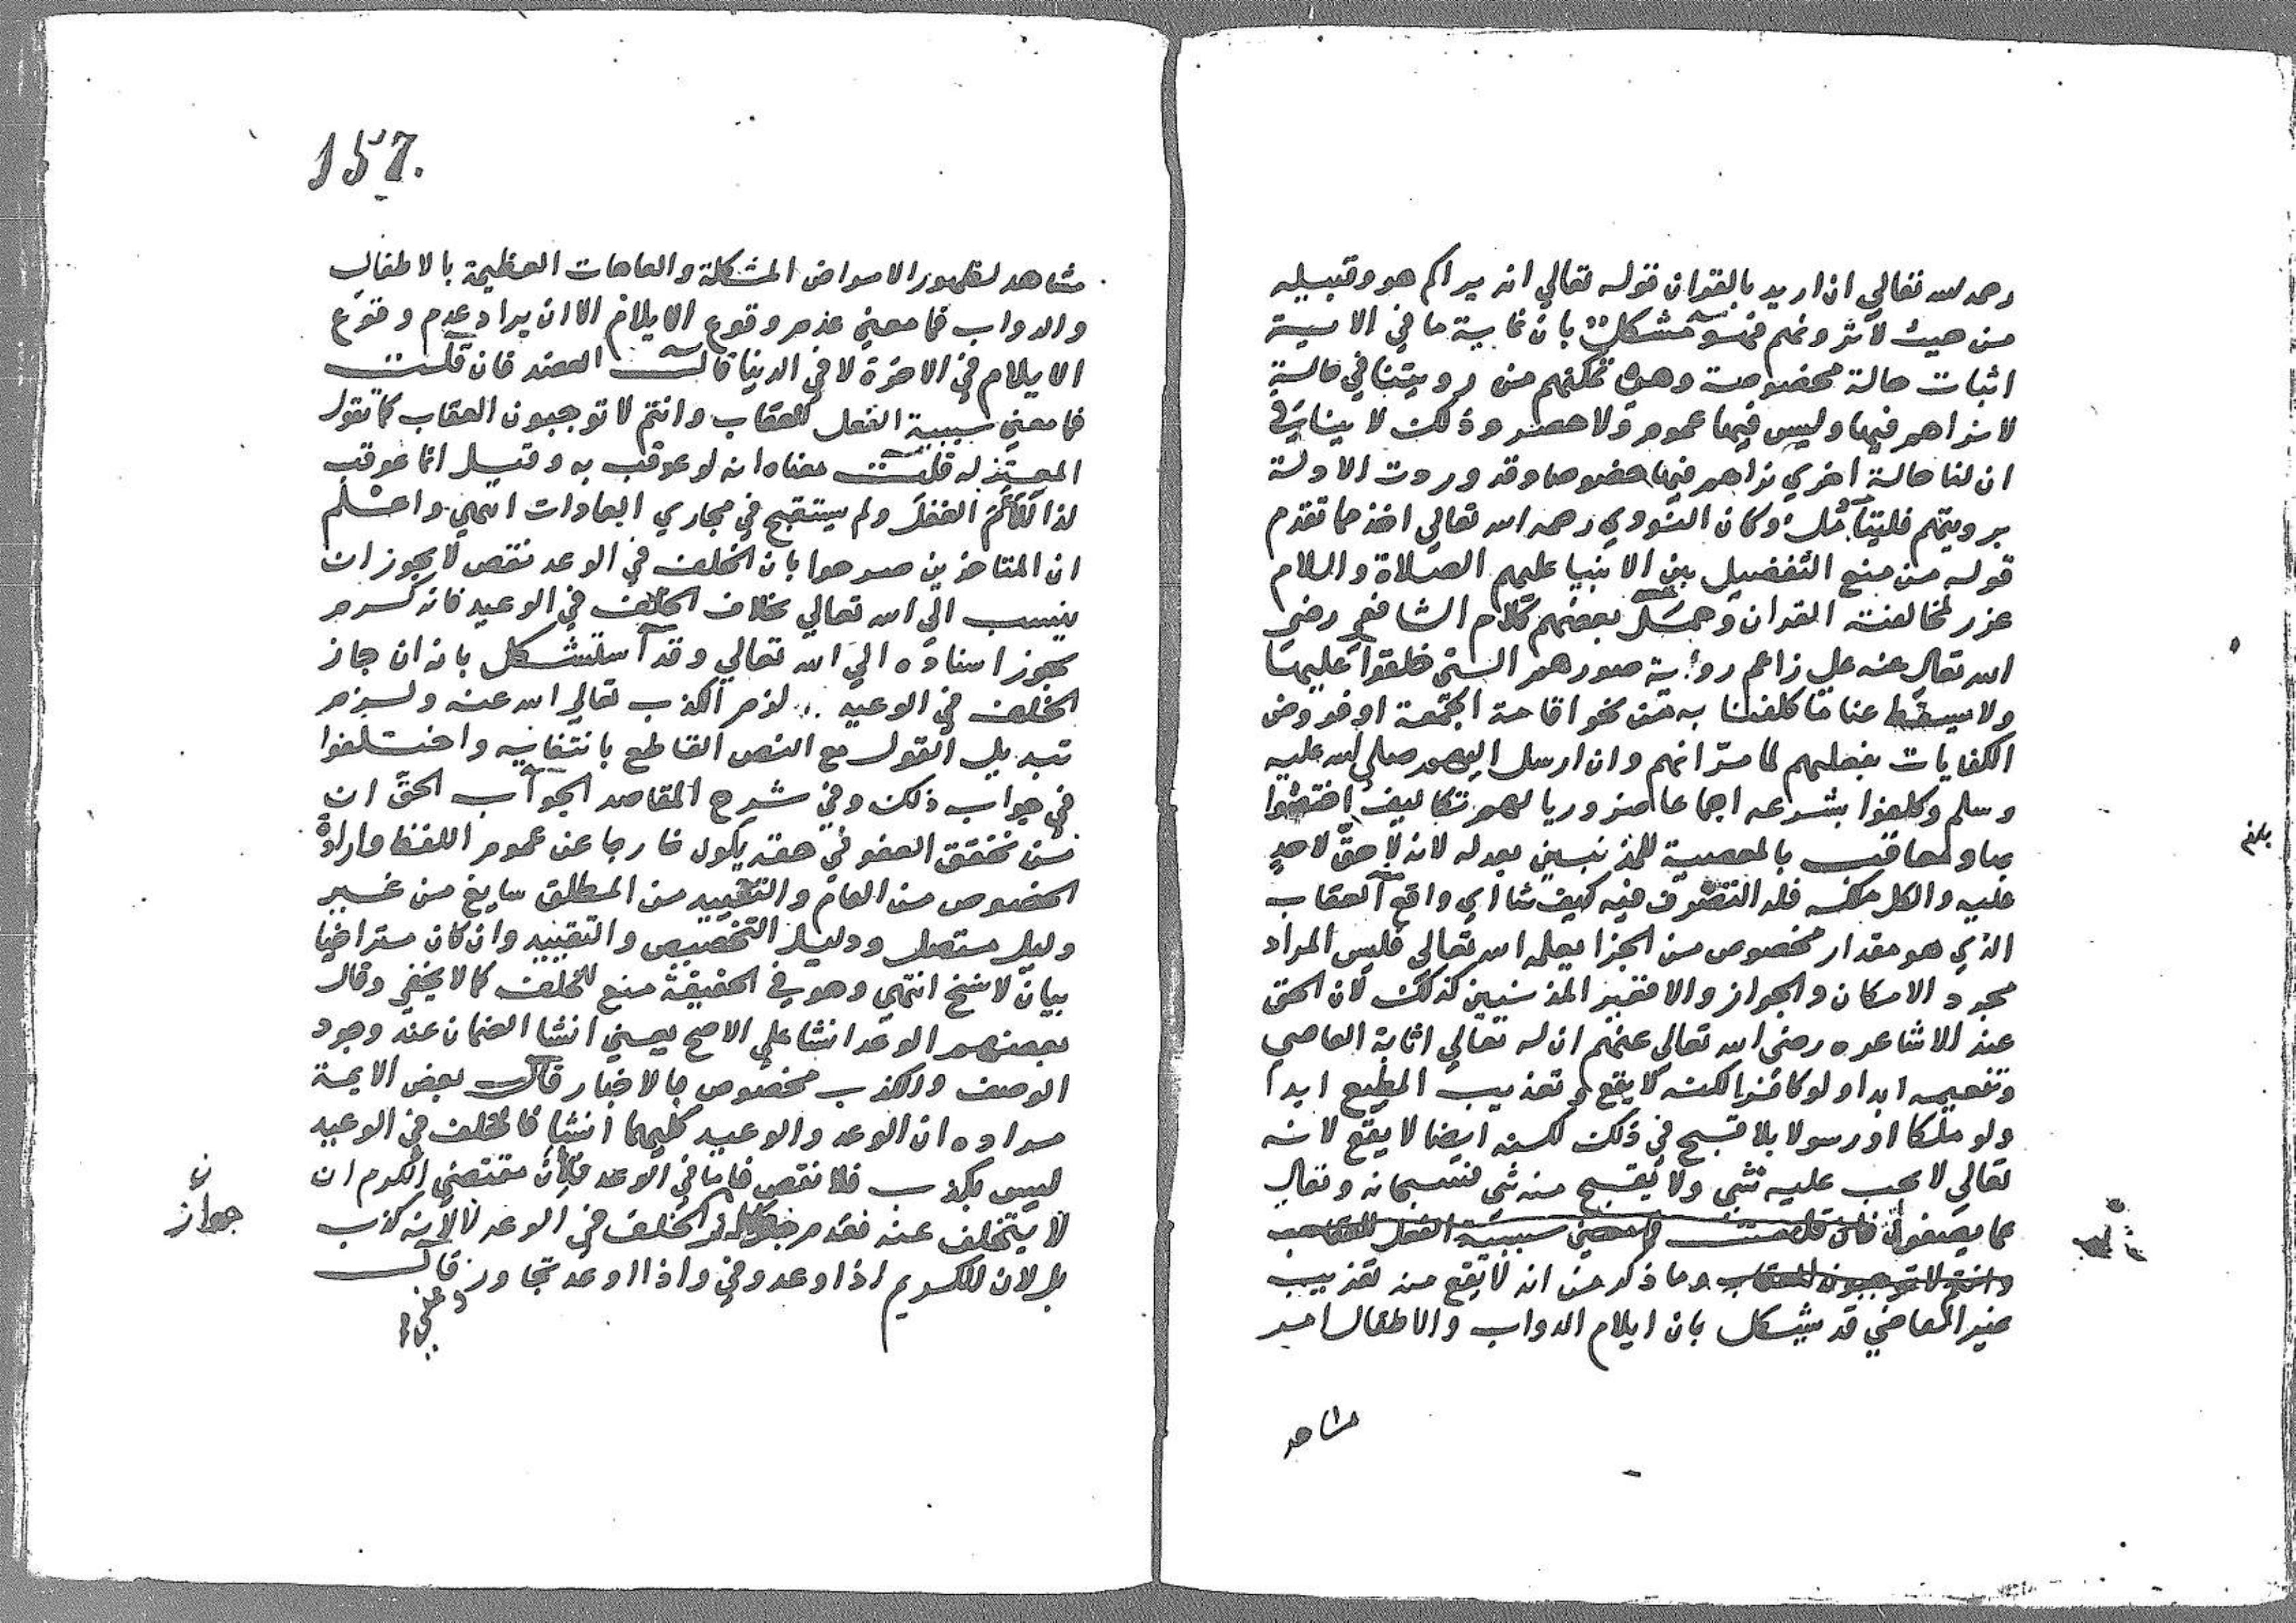 رحمه الله تعالي ان اريد بالقران قوله تعالي انه يراكم هو وقبيله
من حيث لا ترونهم فهو مشكل بان غاية ما في الاية
اثبات حالة مخصوصة وهي تمكنهم من رويتنا في حالة
لا نراهم فيها وليس فيها عموم ولا حصر وذلك لا ينافي
ان لنا حالة اخري نراهم فيها خصوصا وقد وردت الادلة
برويتهم فليتأمل وكان النووي رحمه الله تعالي اخذ مما تقدم
قوله من منع التفضيل بين الانبيا عليهم الصلاة والسلام
عزر لمخالفته القران وحمل بعضهم كلام الشافعي رضي
الله تعالي عنه علي زاعم روية صورهم التي خلقوا عليها
ولا يسقط عنا ما كلفنا به من نحو اقامة الجمعة او فروض
الكفايات بفعلهم لما مر انهم وان ارسل اليهم صلي الله عليه
وسلم وكلفوا بشرعه اجماعا ضروريا لهم تكاليف اختصوا
بها ومعاقب بالمعصية للمذنبين بعدله لانه لا حق لاحد
عليه والكل ملكه فله التصرف فيه كيف شا اي واقع العقاب
الذي هو مقدار مخصوص من الجزا يعلمه الله تعالي فليس المراد
مجرد الامكان والجواز والا فغير المذنبين كذلك لان الحق
عند الاشاعره رضي الله تعالي عنهم ان له تعالي اثابة العاصي
وتنعيمه ابدا ولو كافرا لكنه لا يقع وتعذيب المطيع ابدا
ولو ملكا او رسولا بلا قبح في ذلك لكنه ايضا لا يقع لانه
تعالي لا يجب عليه شي ولا يقبح منه شي فسبحانه وتعالي
عما يصفون فان قلت فما معني سببية الفعل للعقاب
وانتم لا توجبون العقاب وما ذكر من انه لا يقع منه تعذيب
غير العاصي قد يشكل بان ايلام الدواب والاطفال امر
مشاهد
بلغ
157
مشاهد لظهور الامراض المشكلة والعاهات العظيمة بالاطفال
والدواب فما معني عدم وقوع الايلام الا ان يراد عدم وقوع
الايلام في الاخرة لا في الدنيا قال العضد فان قلت
فما معني سببية الفعل للعقاب وانتم لا توجبون العقاب كما تقول
المعتزله قلت معناه انه لو عوقب به وقيل انما عوقب
لذلك الفعل ولم يستقبح في مجاري العادات انتهي واعلم
ان المتاخرين صرحوا بان الخلف في الوعد نقص لا يجوز ان
ينسب الي الله تعالي بخلاف الخلف في الوعيد فانه كرم
يجوز اسناده الي الله تعالي وقد استشكل بانه ان جاز
الخلف في الوعيد لزم الكذب تعالي الله عنه ولزم
تبديل القول مع النص القاطع بانتفايه واختلفوا
في جواب ذلك وفي شرح المقاصد الجواب الحق ان
من تحقق العفو في حقه يكون خارجا عن عموم اللفظ وارادة
الخصوص من العام والتقييد من المطلق سايغ من غير
دليل متصل ودليل التخصيص والتقييد وان كان متراخيا
بيان لا نسخ انتهي وهو في الحقيقة منع للخلف كما لا يخفي وقال
بعضهم الوعد انشا علي الاصح يعني انشا الضمان عند وجود
الوصف والكذب مخصوص بالاخبار قال بعض الايمة
مراده ان الوعد والوعيد كليهما انشا فالخلف في الوعيد
ليس بكذب فلا نقص فاما في الوعد فلان مقتضي الكرم ان
لا يتخلف عنه فعدم الخلف في الوعد لا لانه كذب
بل لان الكريم اذا وعد وفي واذا اوعد تجاوز قال
ن
جواز